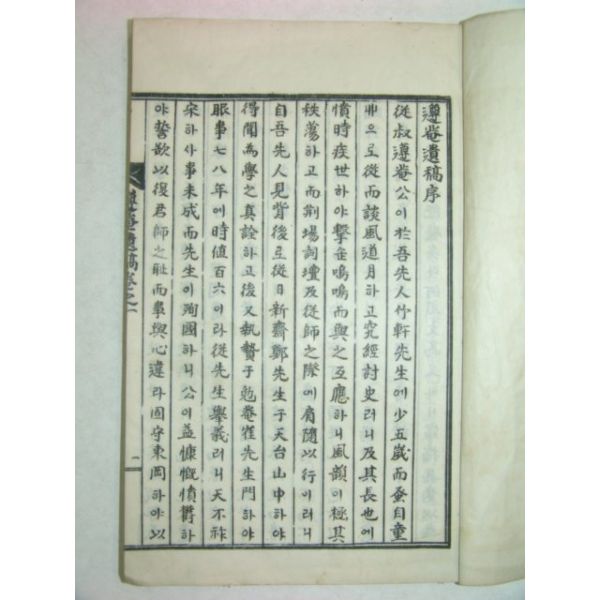 遵菴遺稿序
從叔遵菴公이於吾先人竹軒先生에少五歲而蚤自童
丱으로從而談風道月하고究經討史러니及其長也에
憤時疾世하야擊缶嗚嗚而與之互應하니風韻이極其
秩蕩하고而荆場詞壇及從師之際에肩隨以行이러니
自吾先人見背後로從日新齋鄭先生于天台山中하야
得聞為學之真詮하고後又執贄于勉菴崔先生門하야
服事七八年에時値百六이라從先生擧義러니天不祚
宋하사事未成而先生이殉國하니公이益慷慨憤欝하
야誓欲以復君師之耻而事與心違라固守東岡하야以
遵菴遺稿卷之一
一